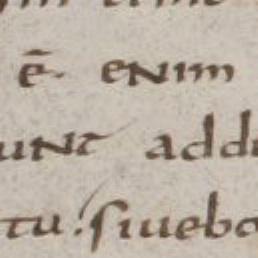 ē· enim
unt addu
tu. siueba